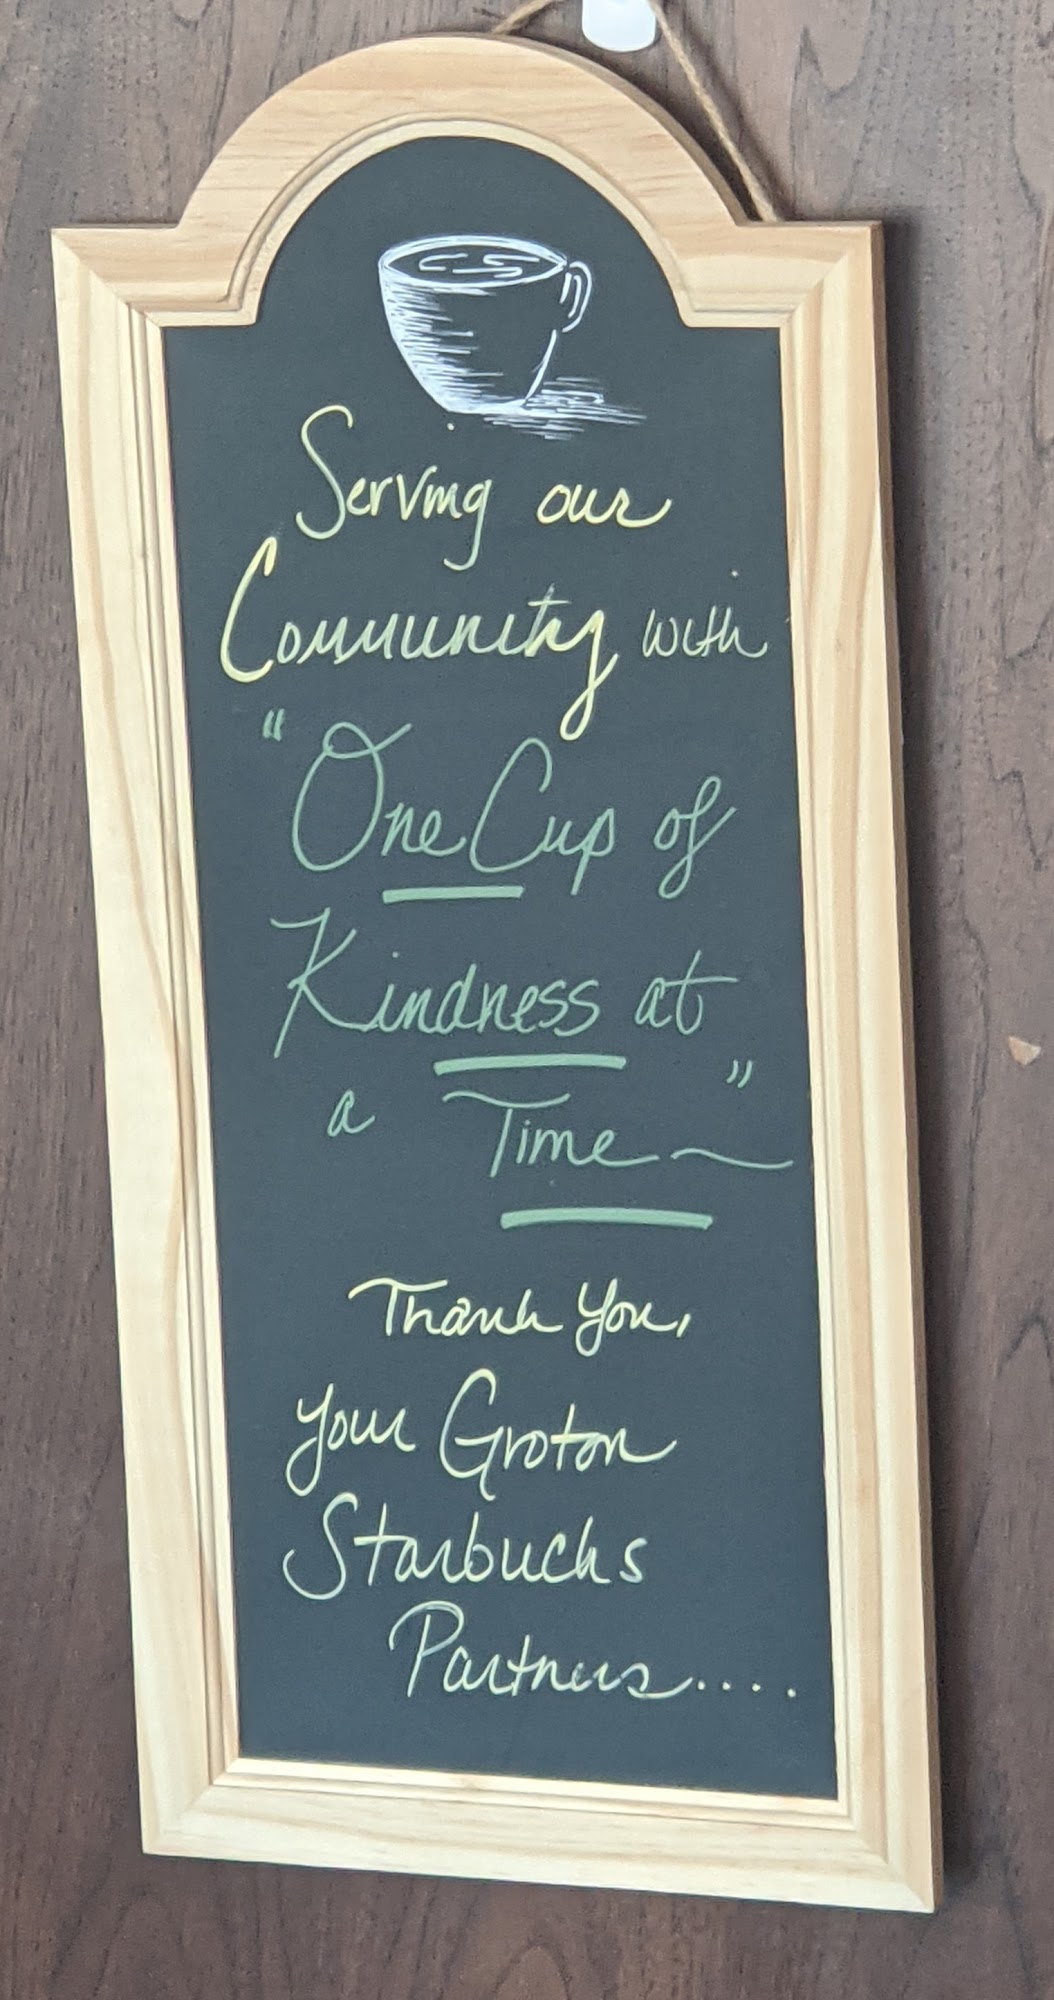 Serving our
Community with
"One Cup of
Kindness at
a Time~"
Thank you,
your Groton
Starbucks
Partners....